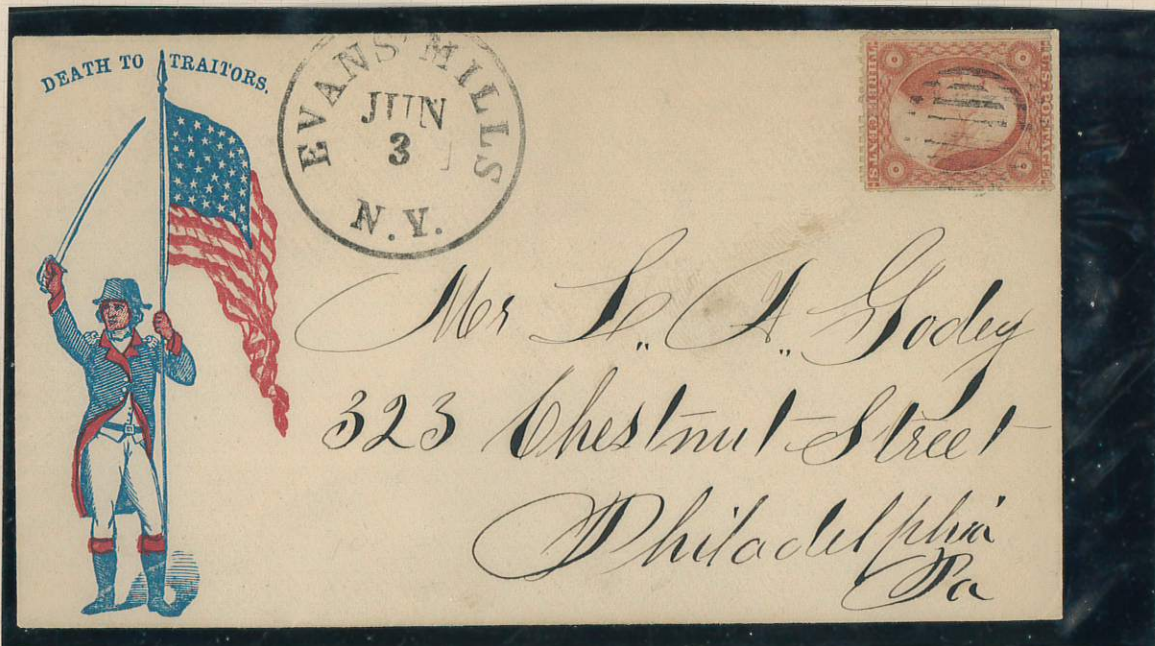 DEATH TO TRAITORS.
EVANS' MILLS
JUN
3
N.Y.
U.S. POSTAGE
THREE CENTS
Mr L. A. Godey
323 Chestnut Street
Philadelphia
Pa